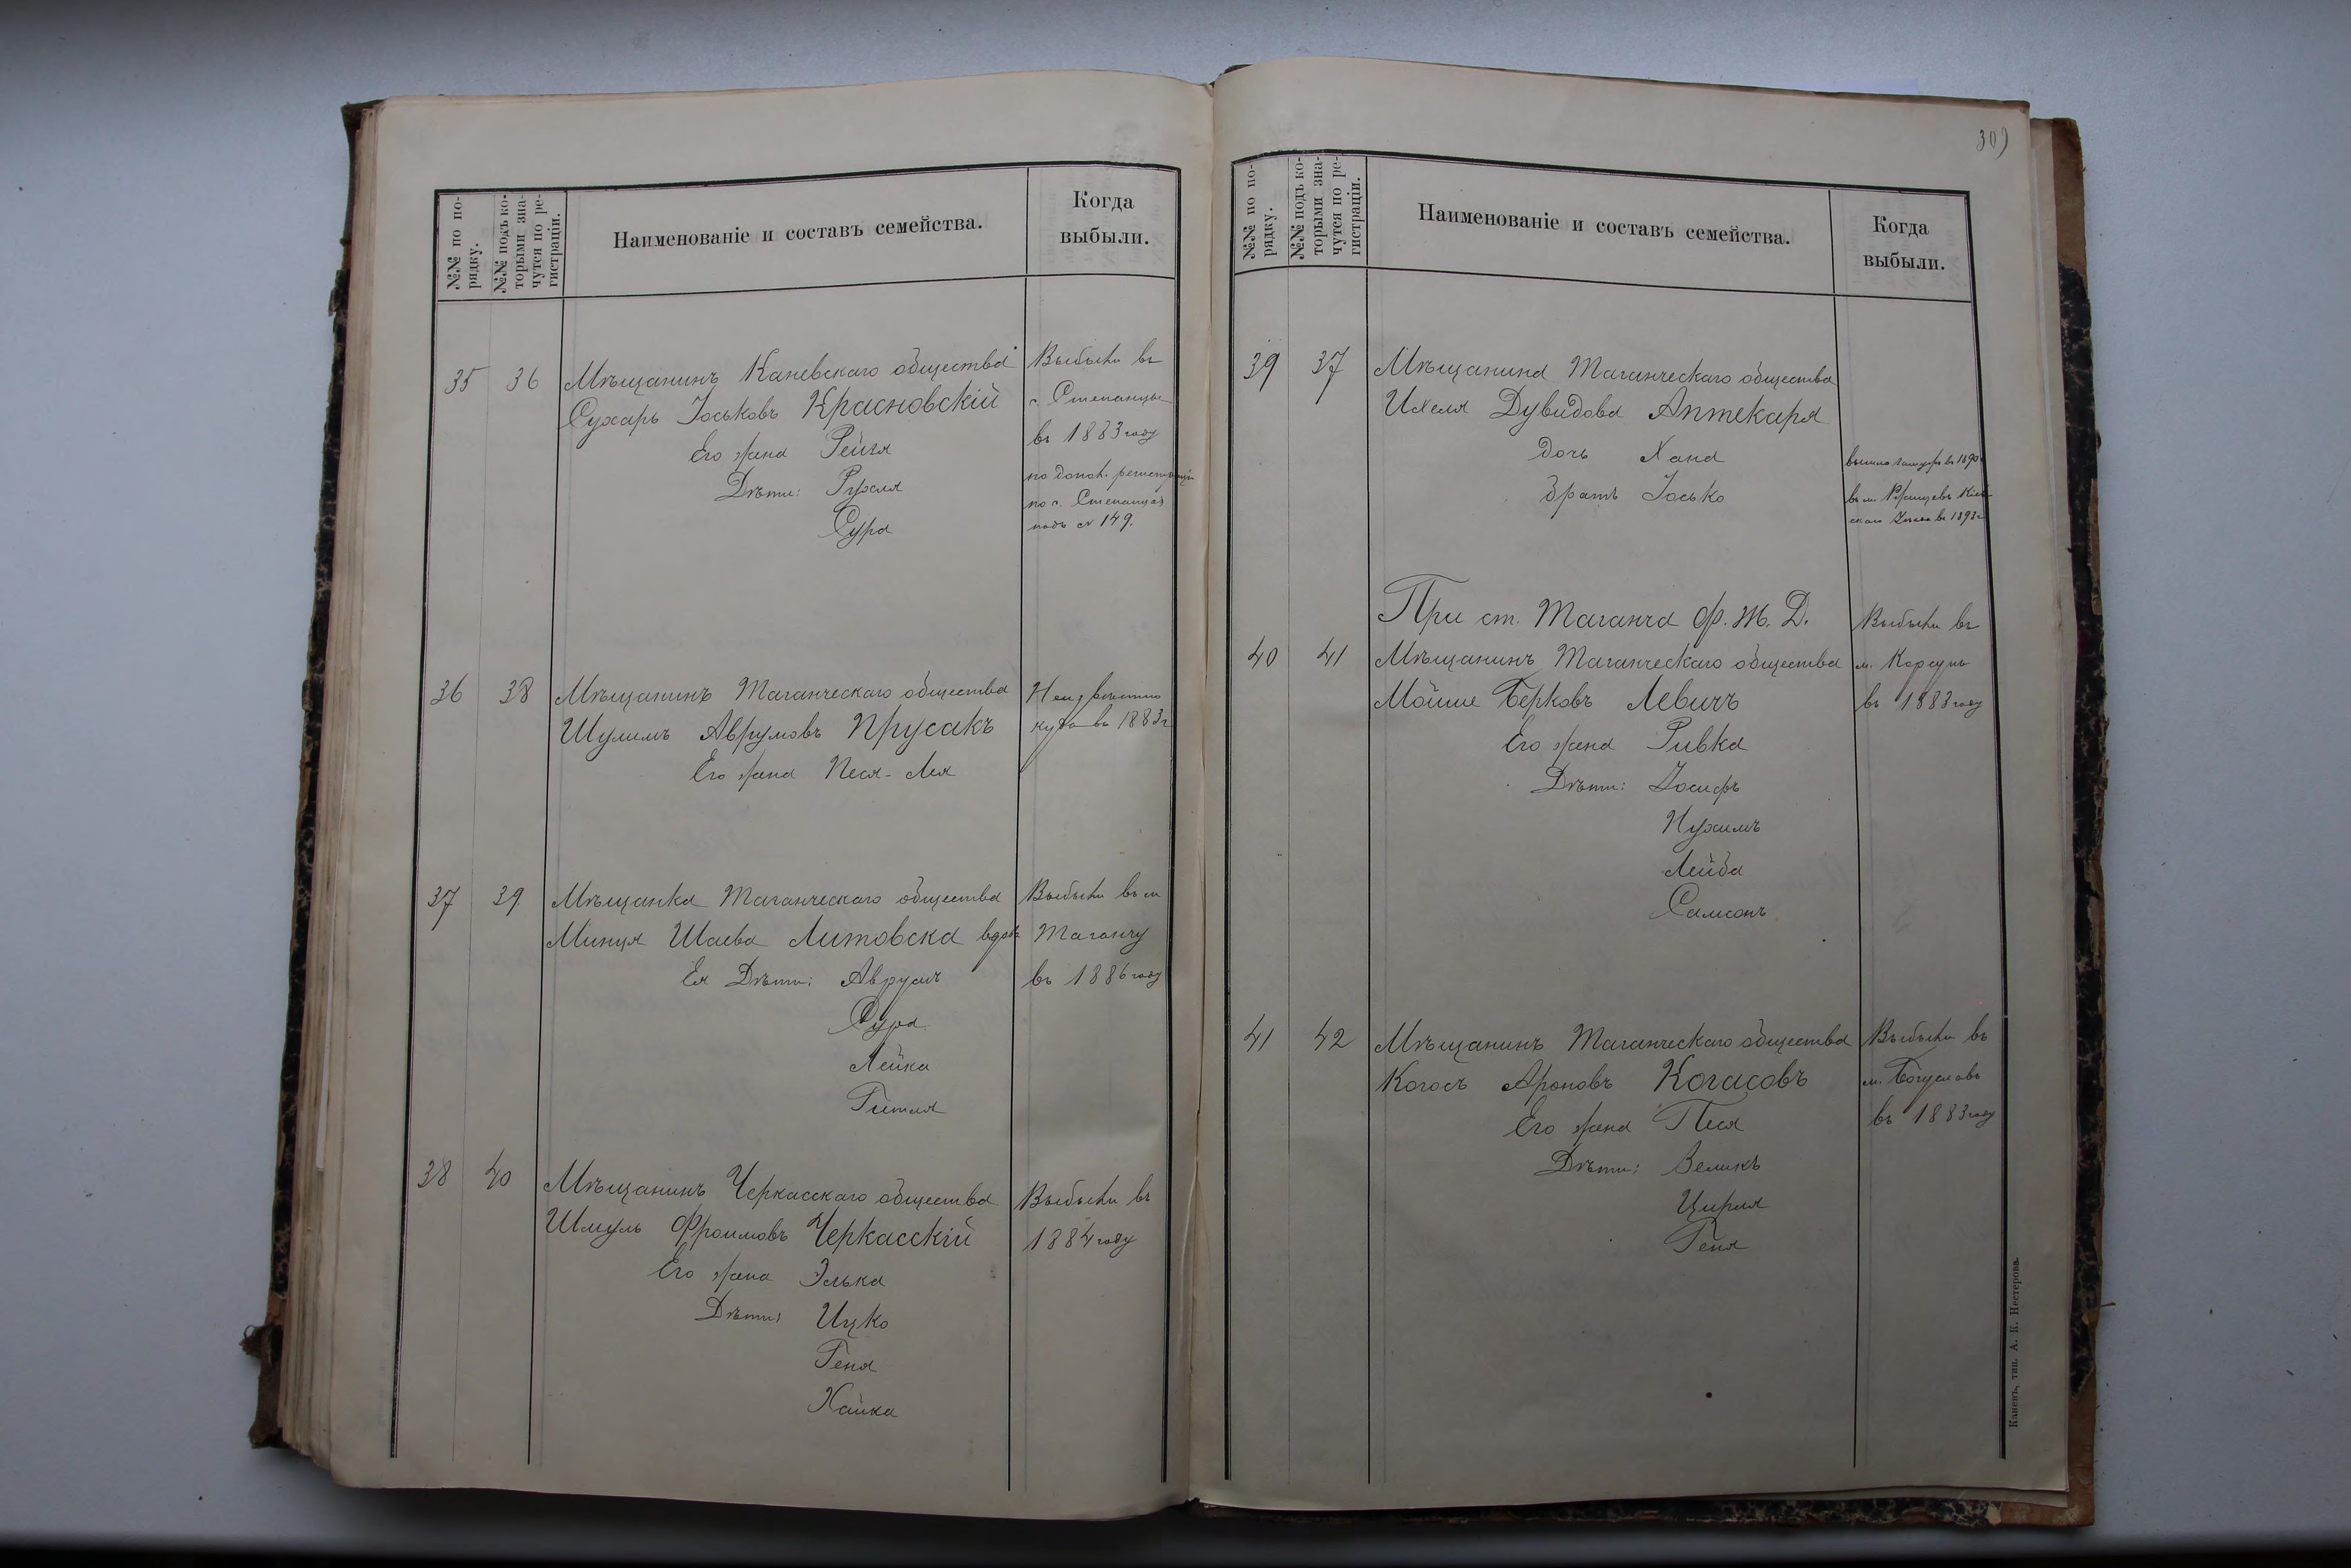 №№ по по-
рядку.
№№ подъ ко-
торыми зна-
чутся по ре-
гистраціи.
Наименованіе и составъ семейства.
Когда
выбыли.
35 36 Мѣщанинъ Каневскаго общества
Сухарь Іоськовъ Красновскій
Его жена Рейзя
Дѣти: Рухля
Сура
Выбыли въ
с. Степанцы
въ 1883 году
по допол. регистраціи
по с. Степанцах
подъ № 149.
36 38 Мѣщанинъ Таганческаго общества
Шулимъ Аврумовъ Прусакъ
Его жена Песя-Лея
Неизвѣстно
куда въ 1883 г
37 39 Мѣщанка Таганческаго общества
Минця Шаева Литовска вдова
Ея Дѣти: Аврумъ
Сура
Лейка
Гитля
Выбыли въ м
Таганчу
въ 1886 году
38 40 Мѣщанинъ Черкасскаго общества
Шмуль Фроимовъ Черкасскій
Его жена Элька
Дѣти: Ицко
Геня
Хайка
Выбыли въ
1884 году
309
№№ по по-
рядку.
№№ подъ ко-
торыми зна-
чутся по ре-
гистраціи.
Наименованіе и составъ семейства.
Когда
выбыли.
39 37 Мѣщанина Таганческаго общества
Ихеля Дувидова Аптекаря
дочь Хана
братъ Іосько
вышла замужъ въ 1890
въ м. Ржищевъ Кіев
скаго въ 1893 г
При ст. Таганча Ф. Ж. Д.
40 41 Мѣщанинъ Таганческаго общества
Мойше Берковъ Левичъ
Его жена Ривка
Дѣти: Іосифъ
Нухимъ
Лейба
Самсонъ
Выбыли въ
м. Корсунь
въ 1883 году
41 42 Мѣщанинъ Таганческаго общества
Когосъ Ароновъ Когасовъ
Его жена Песя
Дѣти: Зеликъ
Цирля
Геня
Выбыли въ
м. Богуславъ
въ 1883 году
Каневъ, тип. А. К. Нестерова.